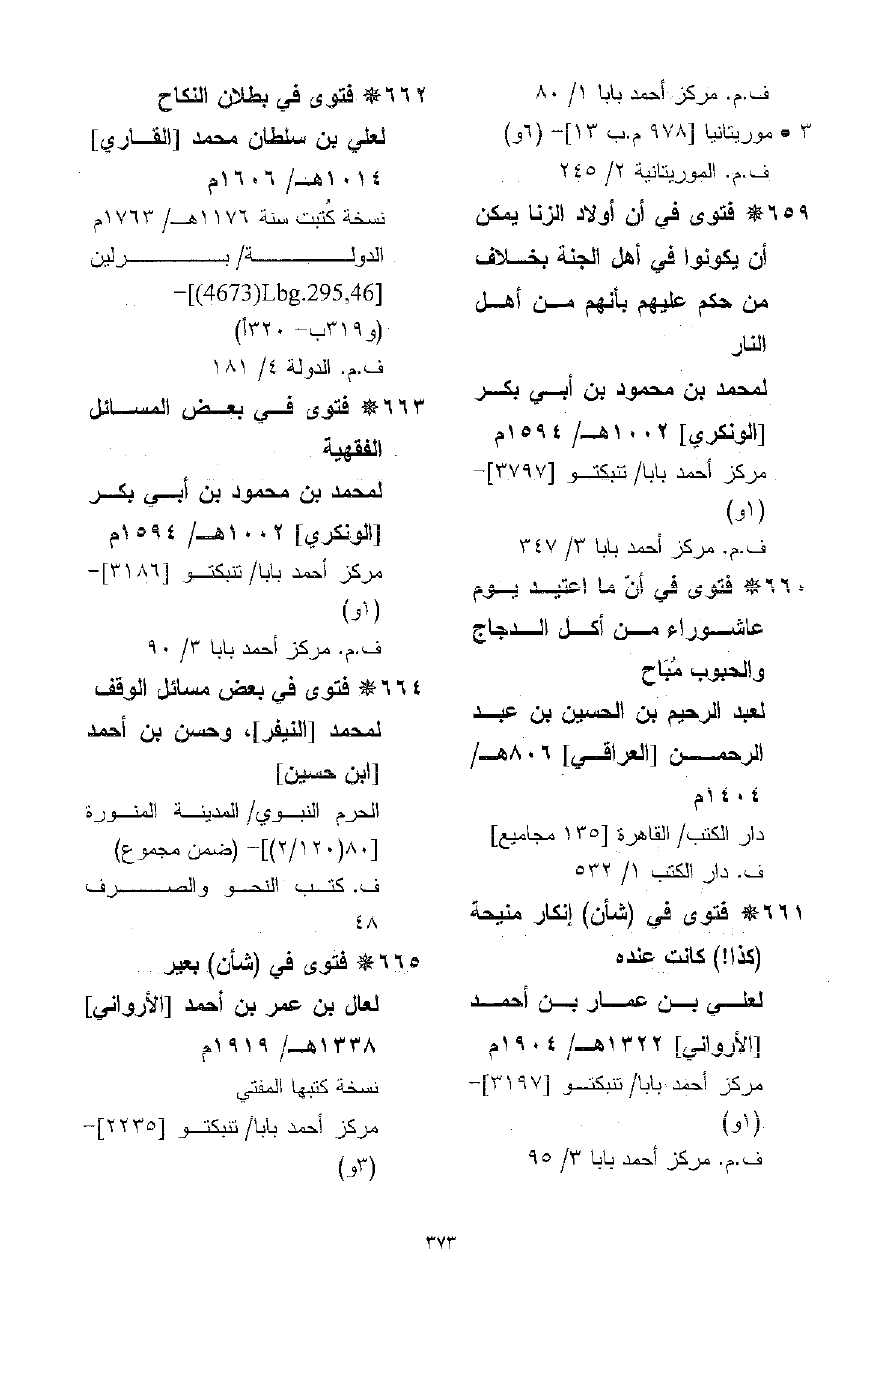 ف.م. مركز أحمد بابا ١/ ٨٠
٣ • موريتانيا [٩٧٨ م.ب ١٣]- (٦و)
ف.م. الموريتانية ٢/ ٢٤٥
٦٥٩* فتوى في أن أولاد الزنا يمكن
أن يكونوا في أهل الجنة بخلاف
من حكم عليهم بأنهم من أهل
النار
لمحمد بن محمود بن أبي بكر
[الونكري] ١٠٠٢هـ/ ١٥٩٤م
مركز أحمد بابا/ تنبكتو [٣٧٩٧]-
(١و)
ف.م. مركز أحمد بابا ٣/ ٣٤٧
٦٦٠* فتوى في أنّ ما اعتيد يوم
عاشوراء من أكل الدجاج
والحبوب مُبَاح
لعبد الرحيم بن الحسين بن عبد
الرحمن [العراقي] ٨٠٦هـ/
١٤٠٤م
دار الكتب/ القاهرة [١٣٥ مجاميع]
ف. دار الكتب ١/ ٥٣٢
٦٦١* فتوى في (شأن) إنكار منيحة
(كذا!) كانت عنده
لعلي بن عمار بن أحمد
[الأرواني] ١٣٢٢هـ/ ١٩٠٤م
مركز أحمد بابا/ تنبكتو [٣١٩٧]-
(١و)
ف.م. مركز أحمد بابا ٣/ ٩٥
٦٦٢* فتوى في بطلان النكاح
لعلي بن سلطان محمد [القاري]
١٠١٤هـ/ ١٦٠٦م
نسخة كُتبت سنة ١١٧٦هـ/ ١٧٦٣م
الدولة/ برلين
[Lbg.295,46(4673)]-
(و٣١٩ب- ٣٢٠أ)
ف.م. الدولة ٤/ ١٨١
٦٦٣* فتوى في بعض المسائل
الفقهية
لمحمد بن محمود بن أبي بكر
[الونكري] ١٠٠٢هـ/ ١٥٩٤م
مركز أحمد بابا/ تنبكتو [٣١٨٦]-
(١و)
ف.م. مركز أحمد بابا ٣/ ٩٠
٦٦٤* فتوى في بعض مسائل الوقف
لمحمد [النيفر]، وحسن بن أحمد
[ابن حسين]
الحرم النبوي/ المدينة المنورة
[٨٠(٢/١٢٠)]- (ضمن مجموع)
ف. كتب النحو والصرف
٤٨
٦٦٥* فتوى في (شأن) بعير
لعال بن عمر بن أحمد [الأرواني]
١٣٣٨هـ/ ١٩١٩م
نسخة كتبها المفتي
مركز أحمد بابا/ تنبكتو [٢٢٣٥]-
(٣و)
٣٧٣